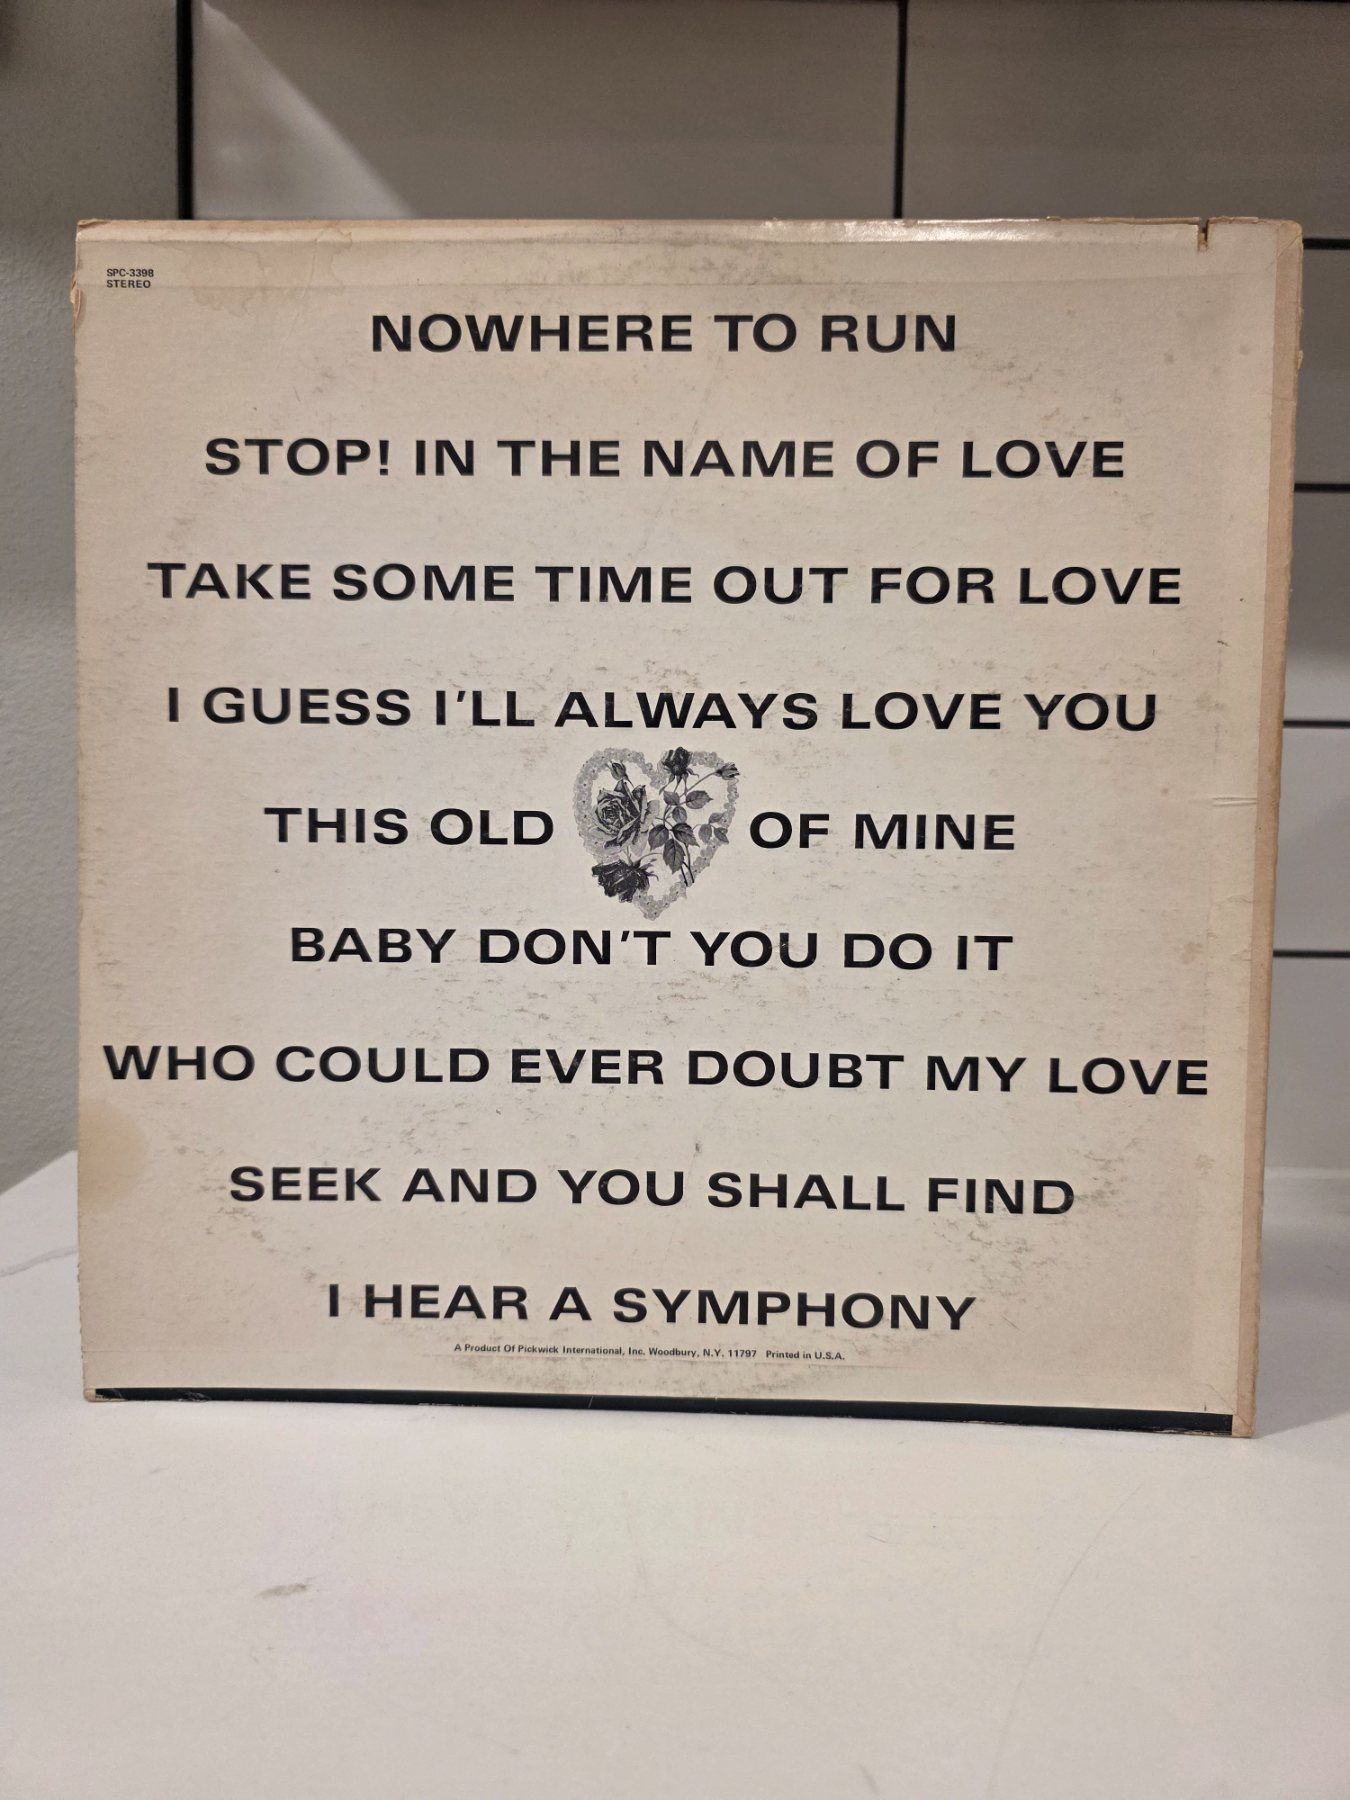 SPC-3398
STEREO
NOWHERE TO RUN
STOP! IN THE NAME OF LOVE
TAKE SOME TIME OUT FOR LOVE
I GUESS I'LL ALWAYS LOVE YOU
THIS OLD OF MINE
BABY DON'T YOU DO IT
WHO COULD EVER DOUBT MY LOVE
SEEK AND YOU SHALL FIND
I HEAR A SYMPHONY
A Product Of Pickwick International, Inc. Woodbury, N.Y. 11797 Printed in U.S.A.